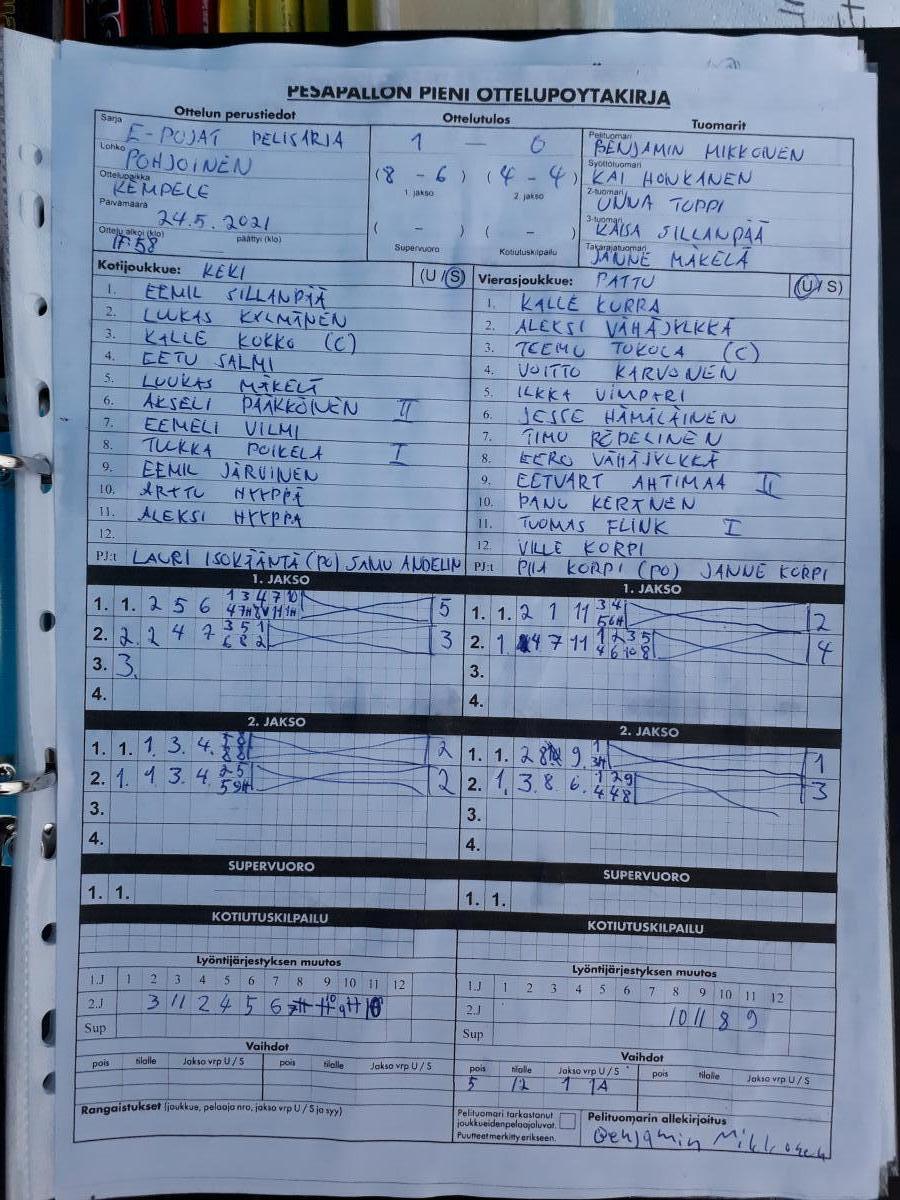 PESÄPALLON PIENI OTTELUPÖYTÄKIRJA
Ottelun perustiedot
Sarja E-POJAT PELISARJA
Lohko POHJOINEN
Ottelupaikka KEMPELE
Päivämäärä 24.5.2021
Ottelu alkoi (klo) 17:58 päättyi (klo)
Ottelutulos
1 — 0
(8 - 6) (4 - 4)
1. jakso 2. jakso
( - ) ( - )
Supervuoro Kotiutuskilpailu
Tuomarit
Pelituomari BENJAMIN MIKKONEN
Syöttötuomari KAI HONKANEN
2-tuomari UNNA TOPPI
3-tuomari KAISA SILLANPÄÄ
Takarajatuomari JANNE MÄKELÄ
Kotijoukkue: KEKI (U/S)
1. EEMIL SILLANPÄÄ
2. LUKAS KYLMÄNEN
3. KALLE KOKKO (C)
4. EETU SALMI
5. LUUKAS MÄKELÄ
6. AKSELI PÄÄKKÖINEN II
7. EEMELI VILMI
8. TUKKA POIKELA I
9. EEMIL JÄRVINEN
10. ARTTU HYYPPÄ
11. ALEKSI HYYPPÄ
12.
PJ:t LAURI ISOKÄÄNTÄ (PO) SAMU ANDELIN
Vierasjoukkue: PATTU (U/S)
1. KALLE KURRA
2. ALEKSI VÄHÄJYLKKÄ
3. TEEMU TOKOLA (C)
4. VOITTO KARVONEN
5. ILKKA VIMPARI
6. JESSE HÄMÄLÄINEN
7. TIMO REPELINEN
8. EERO VÄHÄJYLKKÄ
9. EETVART AHTIMAA II
10. PANU KERÄNEN
11. TUOMAS FLINK I
12. VILLE KORPI
PJ:t PIIA KORPI (PO) JANNE KORPI
1. JAKSO
1. 1. 2 5 6 1 3 4 7 10 5
2. 2. 2 4 7 3 5 1 6 8 2 3
3. 3.
4.
1. JAKSO
1. 1. 2 1 11 3 4 2
2. 1. 4 7 11 1 2 3 5 4 6 10 8 4
3.
4.
2. JAKSO
1. 1. 1. 3. 4. 2
2. 1. 1 3. 4. 2 5 5 9H 2
3.
4.
2. JAKSO
1. 1. 2 8 9. 1 3H 1
2. 1. 3. 8 6. 1 2 9 4 4 8 3
3.
4.
SUPERVUORO
1. 1.
SUPERVUORO
1. 1.
KOTIUTUSKILPAILU
KOTIUTUSKILPAILU
Lyöntijärjestyksen muutos
1.J 1 2 3 4 5 6 7 8 9 10 11 12
2.J 3 11 2 4 5 6
Sup
Lyöntijärjestyksen muutos
1.J 1 2 3 4 5 6 7 8 9 10 11 12
2.J 10 11 8 9
Sup
Vaihdot
pois tilalle Jakso vrp U / S pois tilalle Jakso vrp U / S
Vaihdot
pois tilalle Jakso vrp U / S pois tilalle Jakso vrp U / S
5 12 1 1A
Rangaistukset (joukkue, pelaaja nro, jakso vrp U / S ja syy)
Pelituomari tarkastanut
joukkueiden pelaajaluvat.
Puutteet merkitty erikseen.
Pelituomarin allekirjoitus
Benjamin Mikkonen